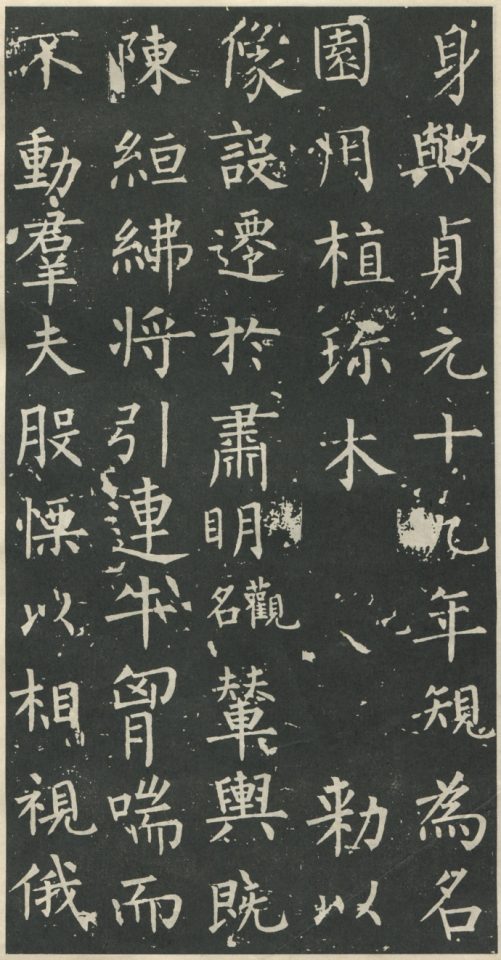 身歟貞元十九年䂓為名
園用植珎木勑以
像設遷於肅明觀名輦輿既
陳絙紼将引連牛胷喘而
不動羣夫股慄以相視俄